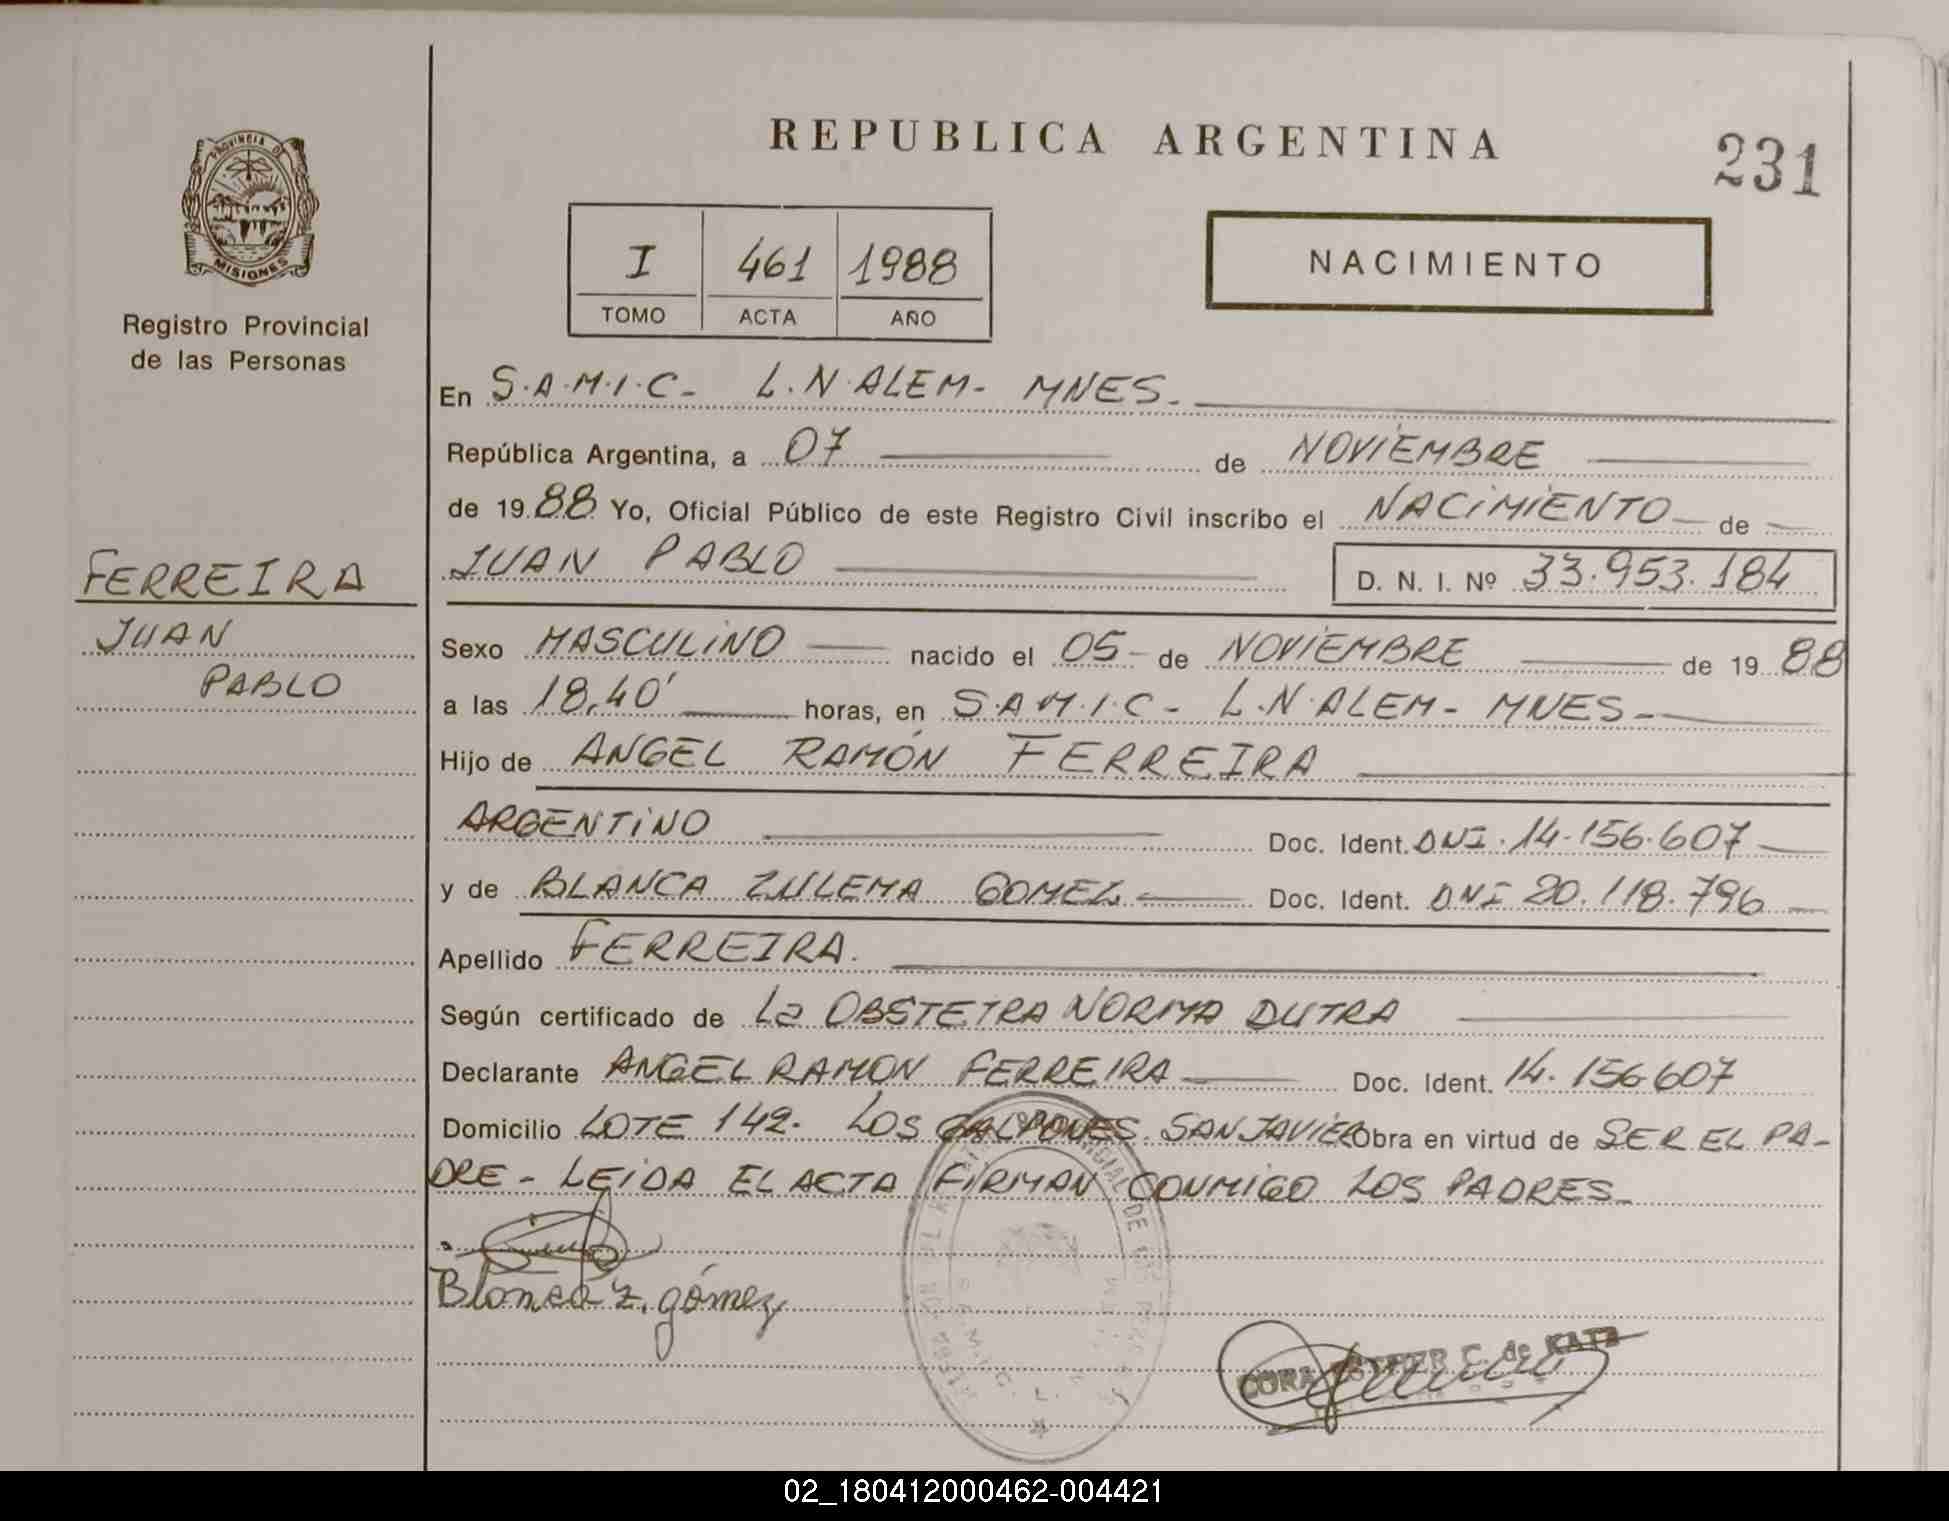 REPUBLICA ARGENTINA
231
PROVINCIA DE
MISIONES
Registro Provincial
de las Personas
I 461 1988
TOMO ACTA AÑO
NACIMIENTO
En S.A.M.I.C- L.N.ALEM- MNES.
República Argentina, a 07 de NOVIEMBRE
de 1988 Yo, Oficial Público de este Registro Civil inscribo el NACIMIENTO de
JUAN PABLO D. N. I. Nº 33.953.184
FERREIRA
JUAN
PABLO
Sexo MASCULINO nacido el 05 de NOVIEMBRE de 1988
a las 18,40' horas, en S.A.M.I.C- L.N.ALEM- MNES-
Hijo de ANGEL RAMÓN FERREIRA
ARGENTINO Doc. Ident. DNI.14.156.607
y de BLANCA ZULEMA GOMEZ Doc. Ident. DNI 20.118.796
Apellido FERREIRA.
Según certificado de La OBSTETRA NORMA DUTRA
Declarante ANGEL RAMON FERREIRA Doc. Ident. 14.156607
Domicilio LOTE 142. LOS GALPONES SAN JAVIER Obra en virtud de SER EL PA-
DRE - LEIDA EL ACTA FIRMAN CONMIGO LOS PADRES-
Blanca Z. gómez
CORA ESTHER C. de KATZ
02_180412000462-004421